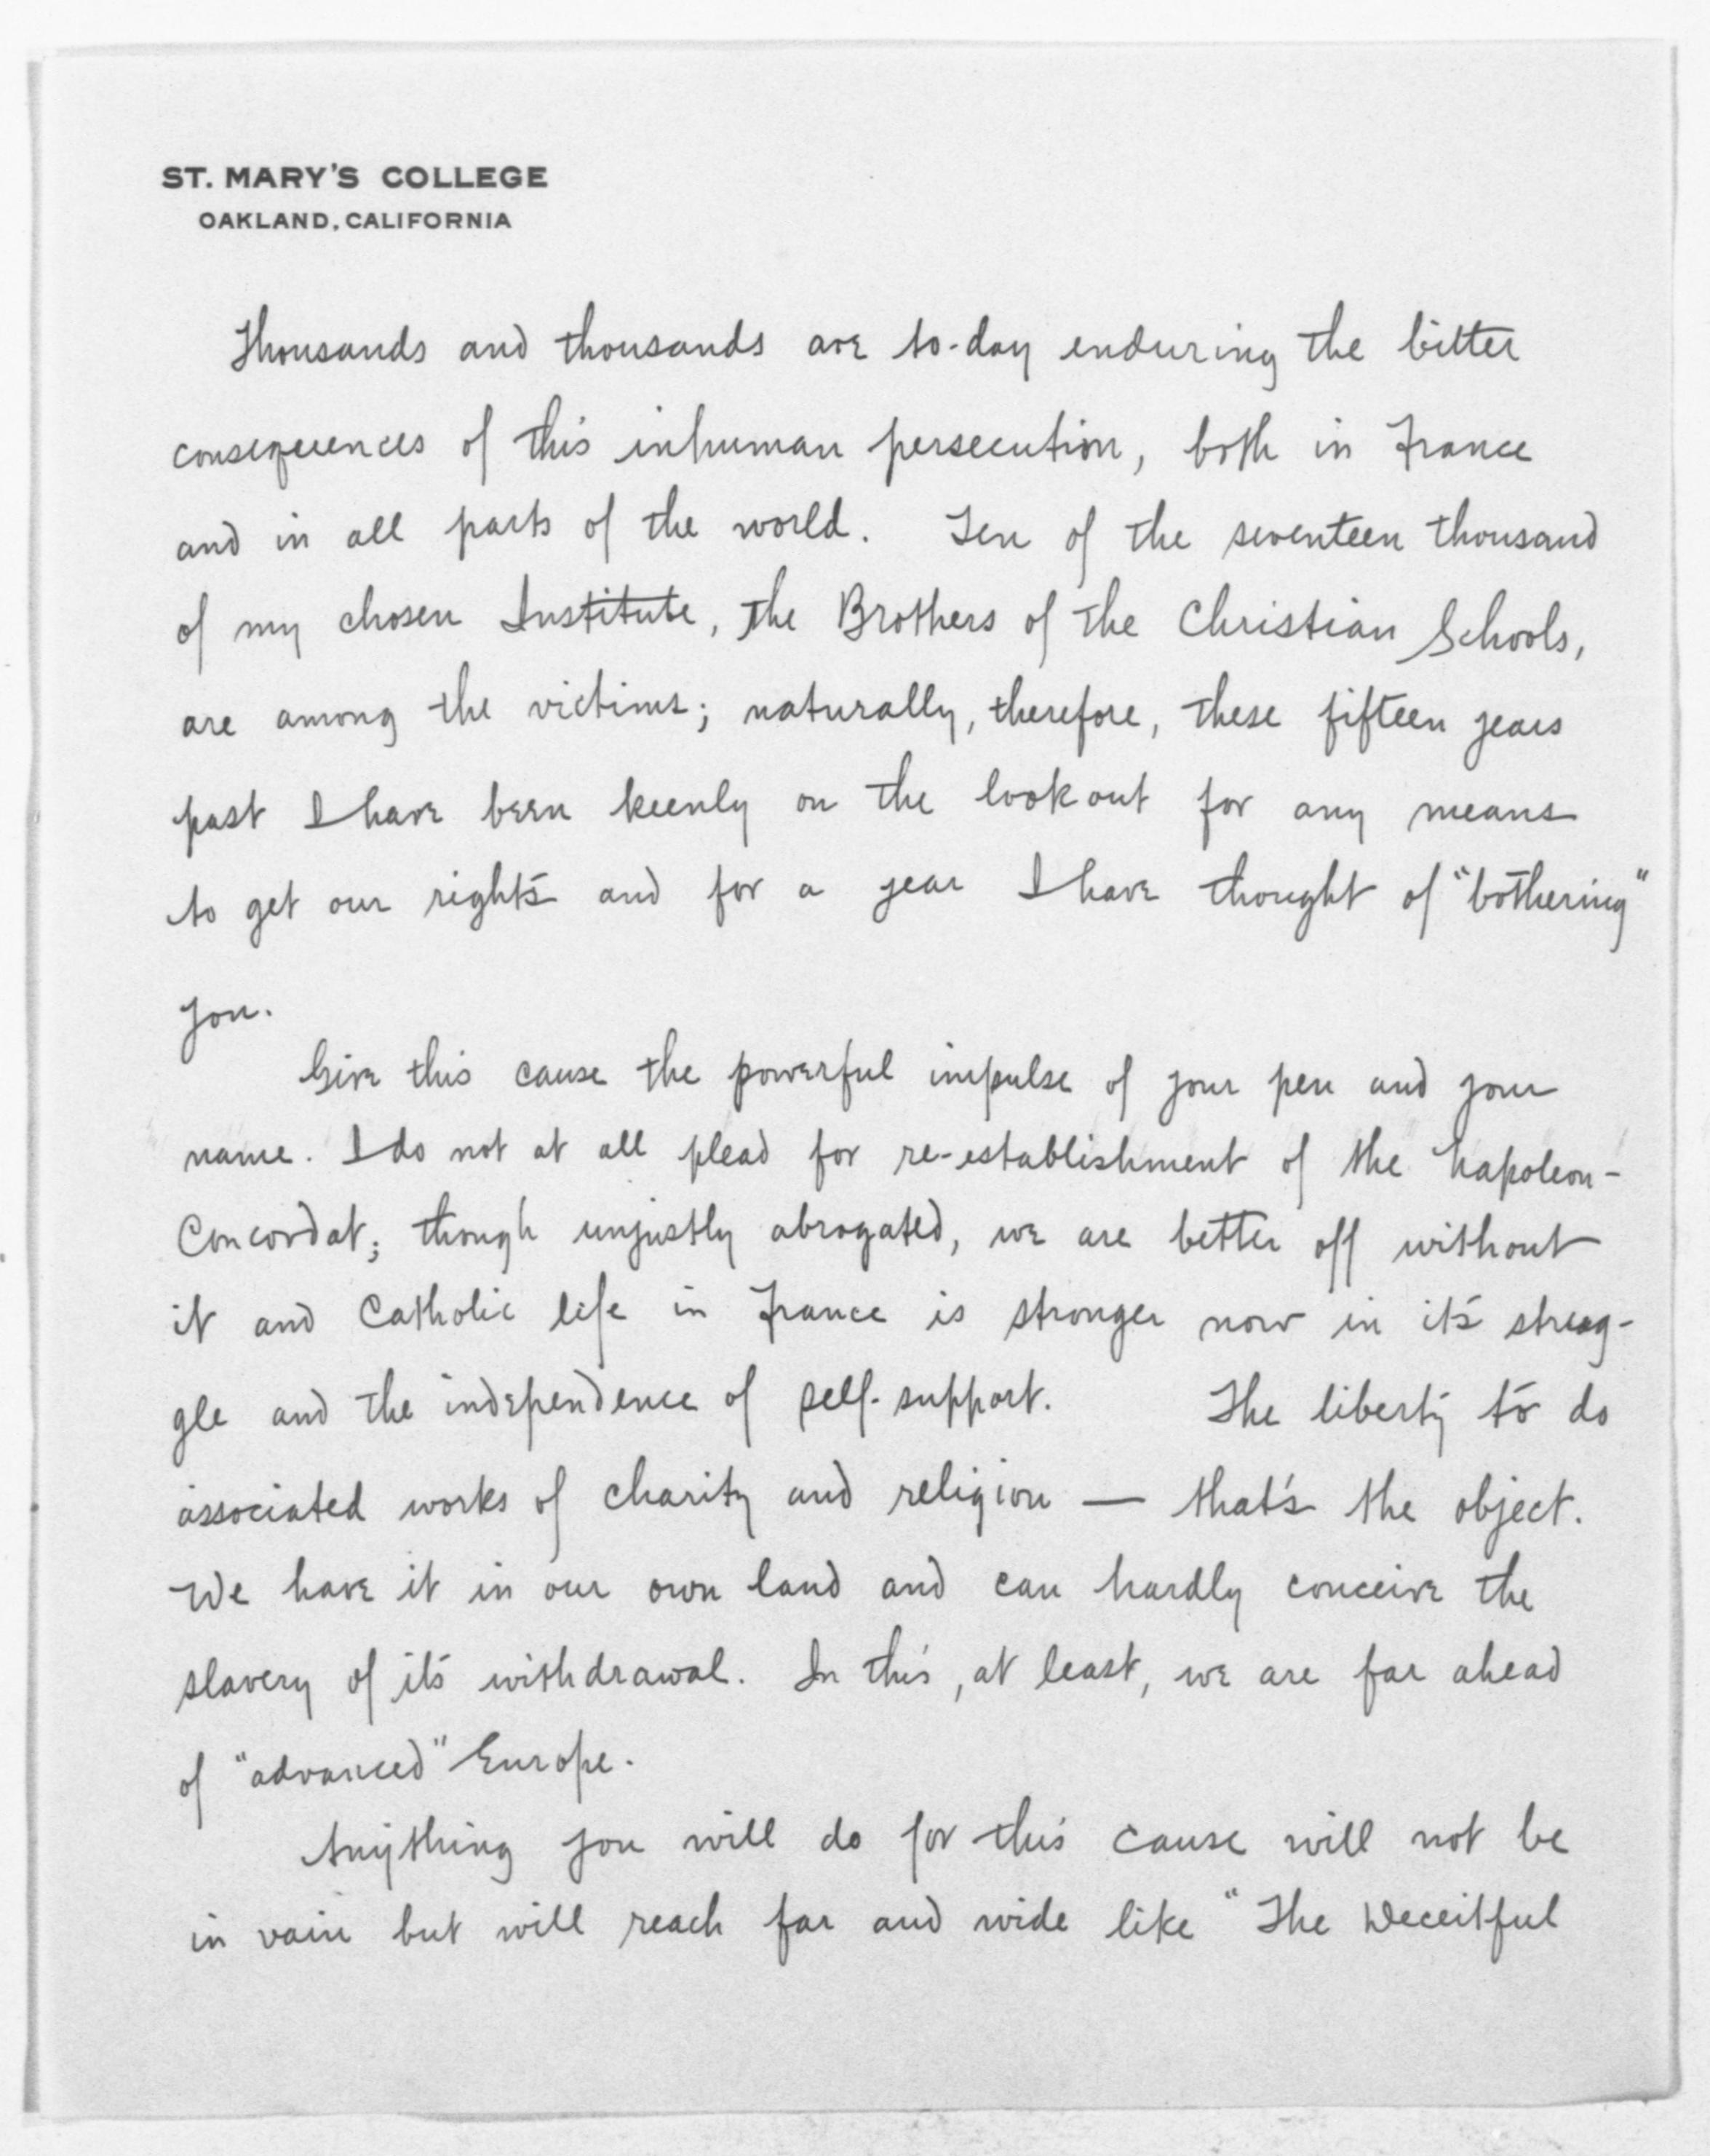 ST. MARY'S COLLEGE
OAKLAND, CALIFORNIA
Thousands and thousands are to-day enduring the bitter
consequences of this inhuman persecution, both in France
and in all parts of the world. Ten of the seventeen thousand
of my chosen Institute, the Brothers of the Christian Schools,
are among the victims; naturally, therefore, these fifteen years
past I have been keenly on the lookout for any means
to get our rights and for a year I have thought of "bothering"
you.
Give this cause the powerful impulse of your pen and your
name. I do not at all plead for re-establishment of the Napoleon-
Concordat; though unjustly abrogated, we are better off without
it and Catholic life in France is stronger now in its strug-
gle and the independence of self-support. The liberty to do
associated works of charity and religion — that's the object.
We have it in our own land and can hardly conceive the
slavery of its withdrawal. In this, at least, we are far ahead
of "advanced" Europe.
Anything you will do for this cause will not be
in vain but will reach far and wide like "The Deceitful